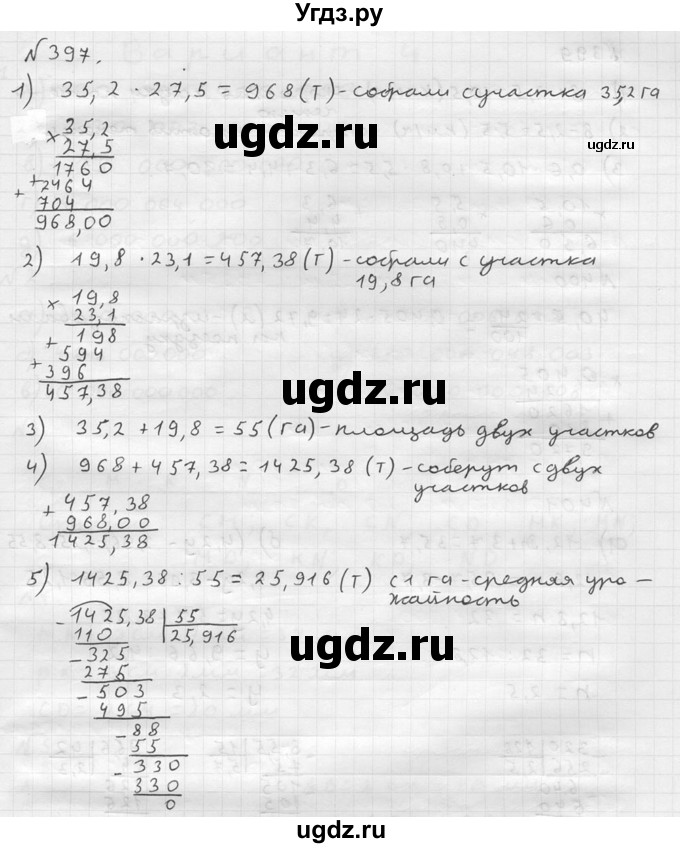 Угдз.ру
№397.
1) 35,2 · 27,5 = 968 (т) - собрали с участка 35,2 га
× 35,2
27,5
1760
+ 2464
+ 704
968,00
ugdz.ru
2) 19,8 · 23,1 = 457,38 (т) - собрали с участка
19,8 га
× 19,8
23,1
+ 198
594
+ 396
457,38
ugdz.ru
3) 35,2 + 19,8 = 55 (га) - площадь двух участков
4) 968 + 457,38 = 1425,38 (т) - соберут с двух
участков
+ 457,38
968,00
1425,38
5) 1425,38 : 55 = 25,916 (т) с 1 га - средняя уро-
жайность
- 1425,38 | 55
110 25,916
- 325
275
- 503
495
- 88
55
- 330
330
0
ugdz.ru
ugdz.ru
ugdz.ru
ugdz.ru
ugdz.ru